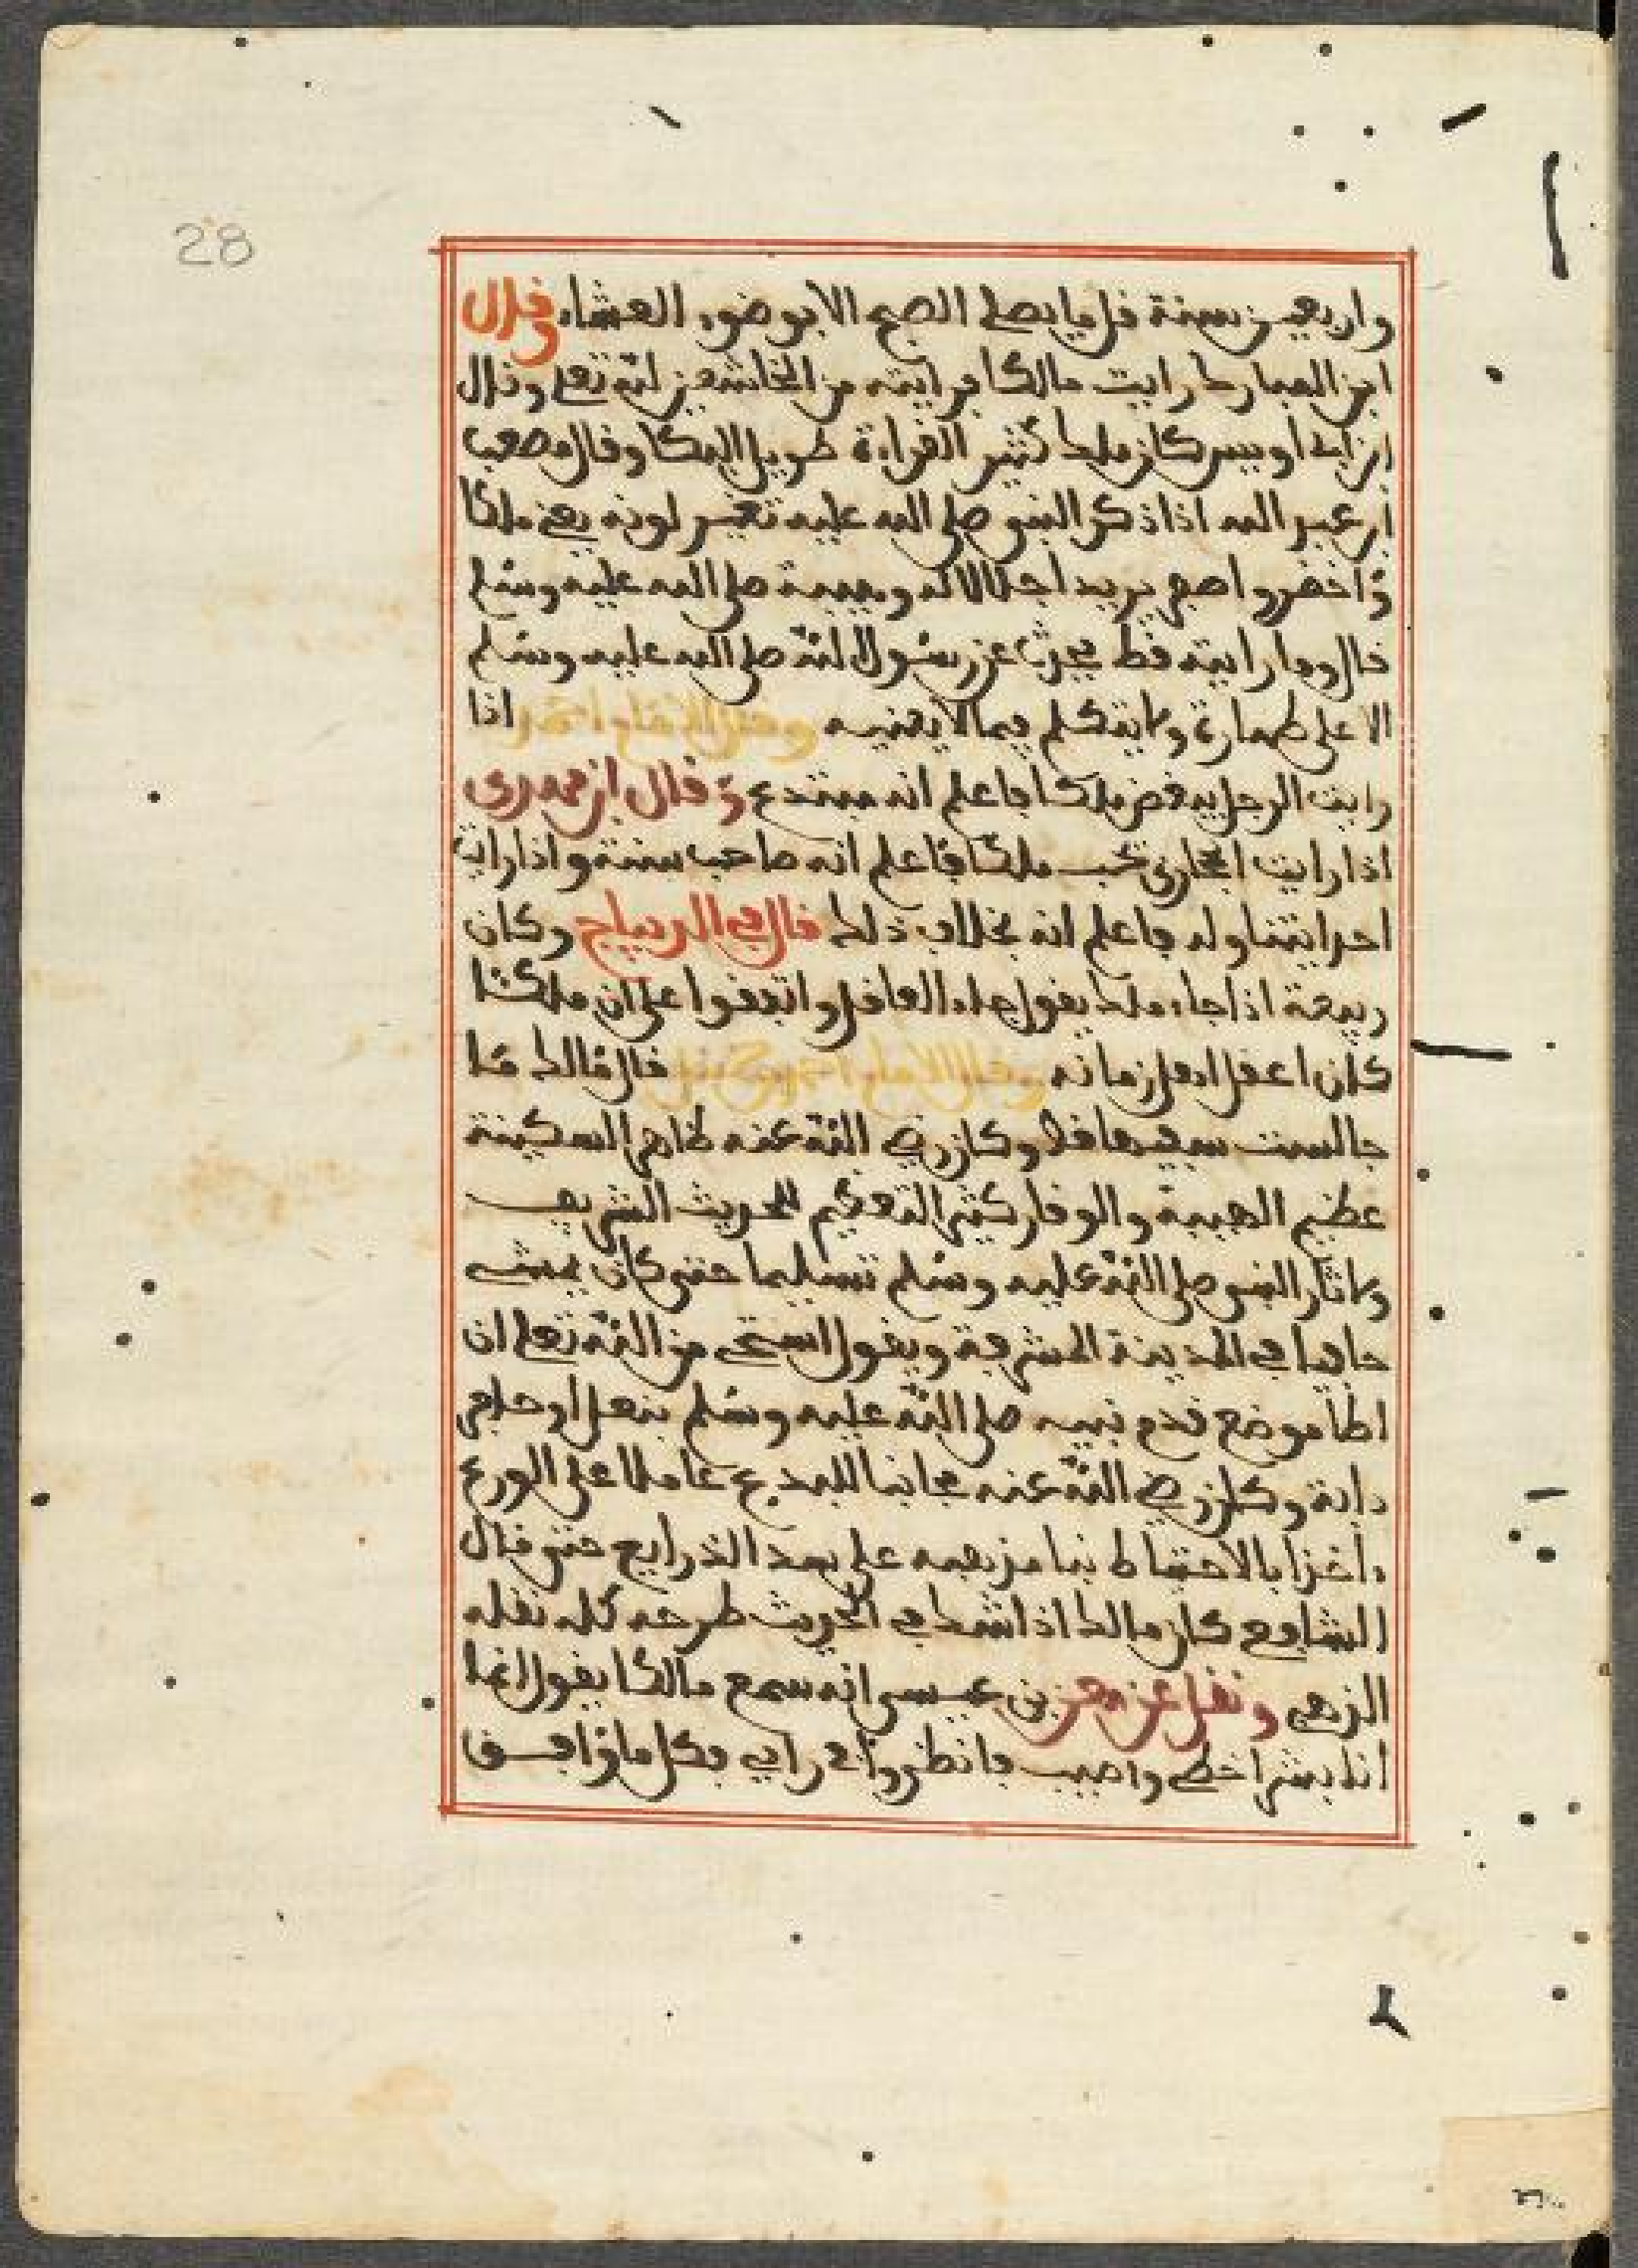 28
واربعين سنة قل ما يصلي الصبح الا بوضوء العشاء وقال
ابن المبارك رايت مالكا فرايته من الخاشعين لله تعلى وقال
ابن ابي اويس كان ملك كثير القراءة طويل البكا وقال مصعب
ابن عبد الله اذا ذكر النبي صلى الله عليه تغير لونه يعني ملكا
واخضر واصفر يريد اجلالا له وهيبة صلى الله عليه وسلم
قال وما رايته قط يحدث عن رسول الله صلى الله عليه وسلم
الا على طهارة ولا يتكلم فيما لا يعنيه وقال الامام احمد اذا
رايت الرجل يبغض ملكا فاعلم انه مبتدع وقال ابن مهدي
اذا رايت الحجازي يحب ملكا فاعلم انه صاحب سنة واذا رايت
احدا يتناوله فاعلم انه بخلاف ذلك قال في الديباج وكان
ربيعة اذا جاء ملك يقول جاء العاقل واتفقوا على ان ملكا
كان اعقل اهل زمانه وقال الامام احمد بن حنبل قال مالك ما
جالست سفيها قط وكان رضي الله عنه ظاهر السكينة
عظيم الهيبة والوقار كثير التعظيم للحديث الشريف
ولاثار النبي صلى الله عليه وسلم تسليما حتى كان يمشي
حافيا في المدينة المشرفة ويقول استحي من الله تعلى ان
اطأ موضع قدم نبيه صلى الله عليه وسلم بنعل او حافر
دابة وكان رضي الله عنه مجانبا للبدع عاملا على الورع
داخذا بالاحتياط بنا مذهبه على سد الذرايع حتى قال
الشافعي كان مالك اذا شك في الحديث طرحه كله نقله
الزهي ونقل عن معن بن عيسى انه سمع مالكا يقول انما
انا بشر اخطي واصيب فانظروا في رايي فكل ما وافق